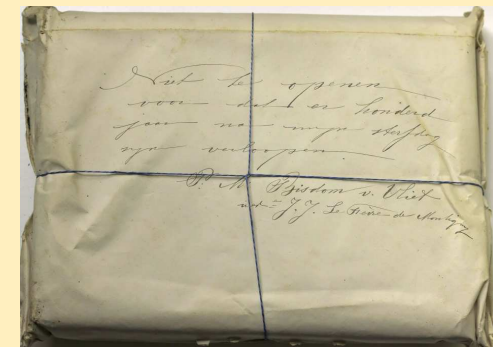 Niet te openen
voor dat er honderd
jaar na mijn sterfdag
zijn verloopen.
P. M. Bisdom v. Vliet
wed= J. J. Le Fèvre de Montigny